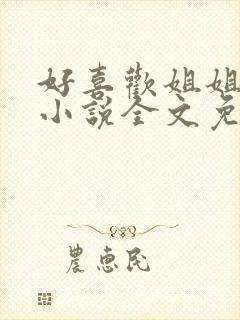 好喜歡姐姐
小說全文免
農惠民